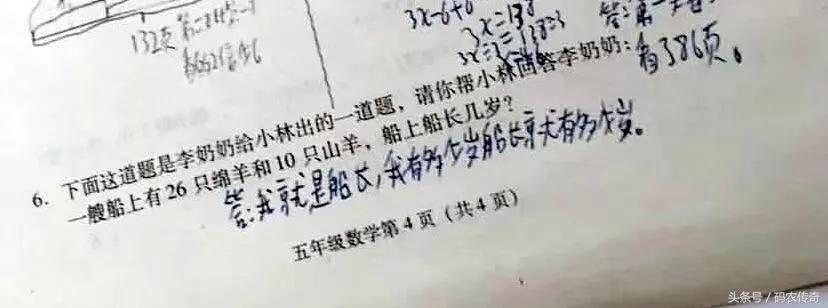 3x-6+6
3x=138
3x÷3=138÷3
132页
有386页。
6. 下面这道题是李奶奶给小林出的一道题，请你帮小林回答李奶奶：
一艘船上有26只绵羊和10只山羊，船上船长几岁？
答：我就是船长，我有多少岁船长就有多少岁。
五年级数学第4页（共4页）
头条号／码农传奇